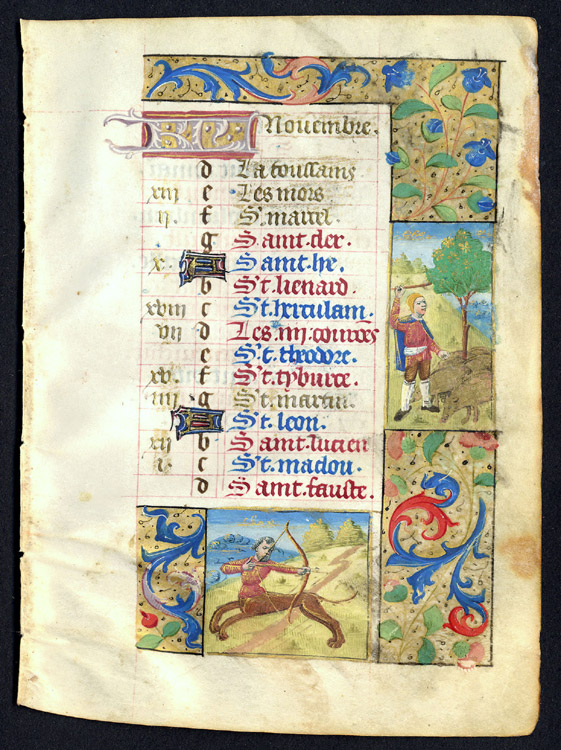 KL Nouembre.
d La toussains
xiii e Les mors
ii f S. marcel
g Saint cler.
x A Saint he.
b St lienard.
xviii c St herculam.
vii d Les iiii couroēs
e St theodore.
xv f St tyburce.
iiii g St martin.
A St leon.
xii b Saint lucien
c St maclou.
d Saint fauste.